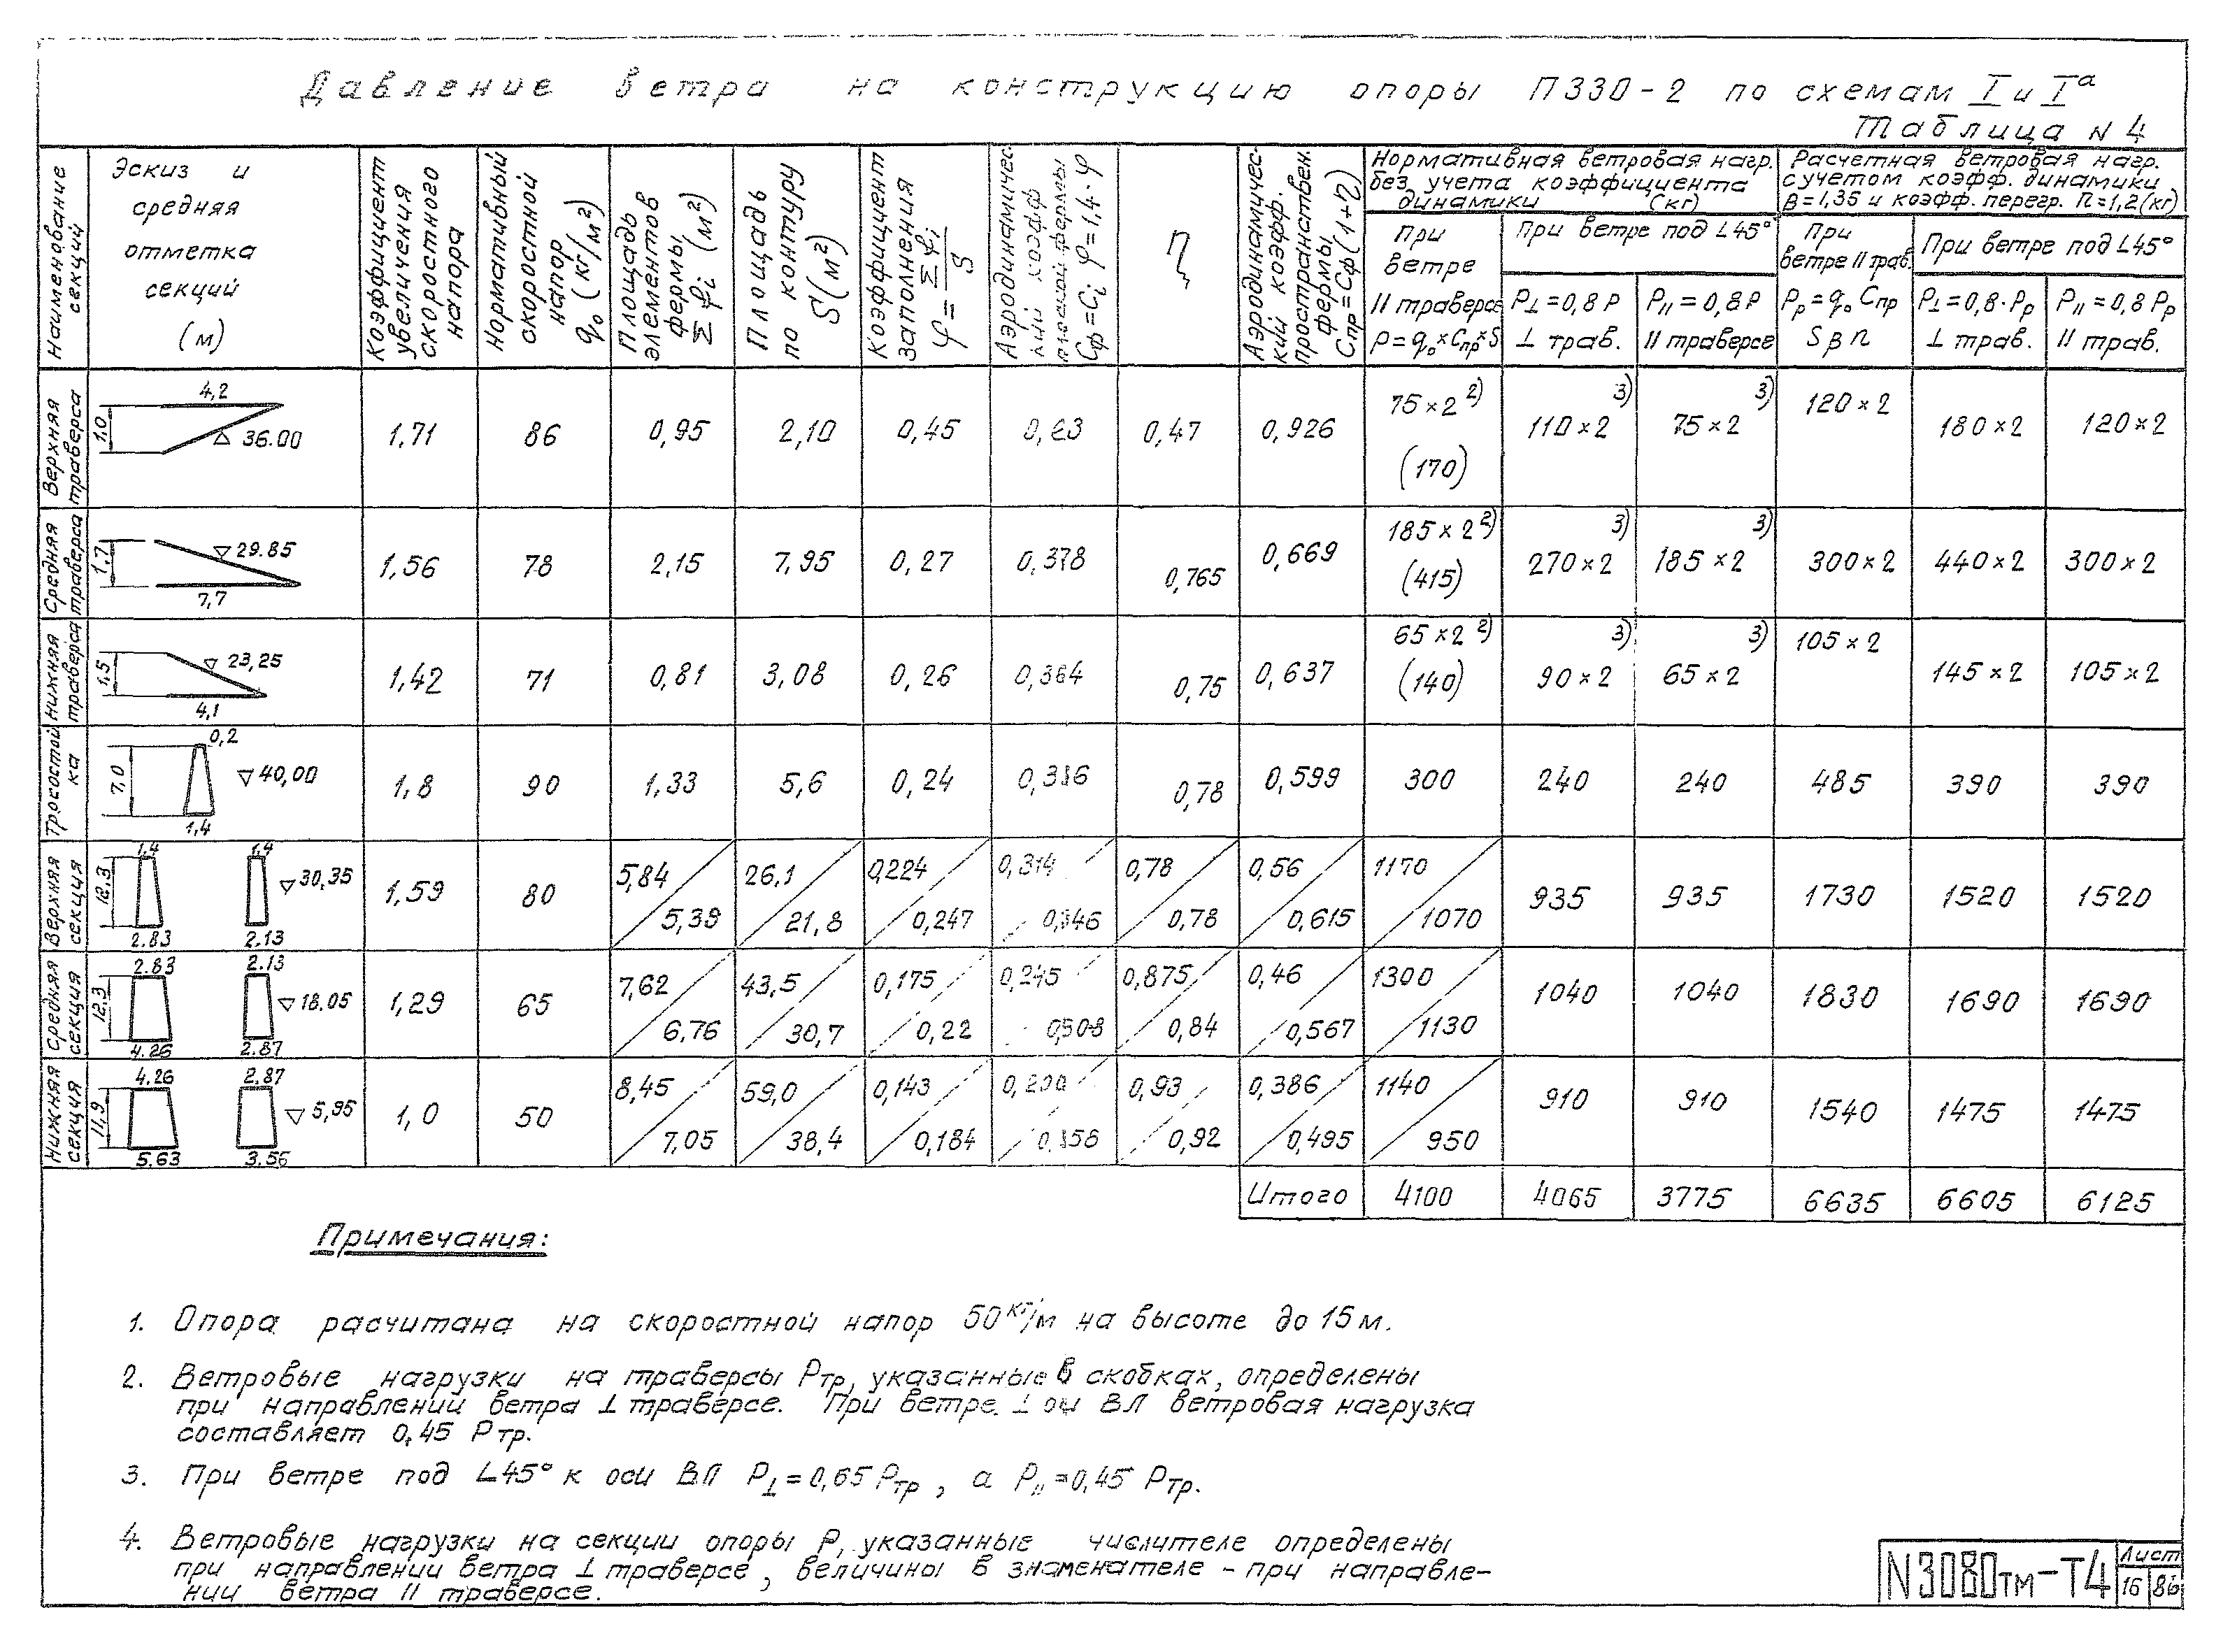 Давление ветра на конструкцию опоры П330-2 по схемам I и Iа
Таблица N 4
Наименование секций
Эскиз и средняя отметка секций (м)
Коэффициент увеличения скоростного напора
Нормативный скоростной напор q₀ (кг/м²)
Площадь элементов фермы Σ fi (м²)
Площадь по контуру S (м²)
Коэффициент заполнения φ = Σ fi / S
Аэродинамичес- кий коэфф. плоской фермы Сф = Ci φ = 1,4·φ
η
Аэродинамичес- кий коэфф. пространствен. фермы Спр = Сф (1+η)
Нормативная ветровая нагр. без учета коэффициента динамики (кг)
При ветре II траверсе P = q₀ × Cпр × S
При ветре под ∠45°
P⊥ = 0,8 P ⊥ трав.
PII = 0,8 P II траверсе
Расчетная ветровая нагр. с учетом коэфф. динамики β = 1,35 и коэфф. перегр. n = 1,2 (кг)
При ветре II трав. Pр = q₀ Cпр S β n
При ветре под ∠45°
P⊥ = 0,8·Pр ⊥ трав.
PII = 0,8 Pр II трав.
Верхняя траверса 4,2 1.0 36.00 1,71 86 0,95 2,10 0,45 0,63 0,47 0,926 75×2 2) (170) 110×2 3) 75×2 3) 120×2 180×2 120×2
Средняя траверса 1,7 29.85 7,7 1,56 78 2,15 7,95 0,27 0,378 0,765 0,669 185×2 2) (415) 270×2 3) 185×2 3) 300×2 440×2 300×2
Нижняя траверса 1,5 23,25 4,1 1,42 71 0,81 3,08 0,26 0,364 0,75 0,637 65×2 2) (140) 90×2 3) 65×2 3) 105×2 145×2 105×2
Тросостой ка 0,2 7,0 40,00 1,4 1,8 90 1,33 5,6 0,24 0,336 0,78 0,599 300 240 240 485 390 390
Верхняя секция 1,4 1,4 12.3 30,35 2.83 2.13 1,59 80 5,84 / 5,39 26,1 / 21,8 0,224 / 0,247 0,314 / 0,346 0,78 / 0,78 0,56 / 0,615 1170 / 1070 935 935 1730 1520 1520
Средняя секция 2.83 2.13 12.3 18.05 4.26 2.87 1,29 65 7,62 / 6,76 43,5 / 30,7 0,175 / 0,22 0,245 / 0,308 0,875 / 0,84 0,46 / 0,567 1300 / 1130 1040 1040 1830 1690 1690
Нижняя секция 4.26 2.87 11,9 5,95 5.63 3.56 1,0 50 8,45 / 7,05 59,0 / 38,4 0,143 / 0,184 0,200 / 0,93 / 0,92 0,386 / 0,495 1140 / 950 910 910 1540 1475 1475
Итого 4100 4065 3775 6635 6605 6125
Примечания:
1. Опора расчитана на скоростной напор 50 кг/м на высоте до 15 м.
2. Ветровые нагрузки на траверсы Pтр, указанные в скобках, определены
при направлении ветра ⊥ траверсе. При ветре ⊥ оси ВЛ ветровая нагрузка
составляет 0,45 Pтр.
3. При ветре под ∠45° к оси ВЛ P⊥ = 0,65 Pтр, а PII = 0,45 Pтр.
4. Ветровые нагрузки на секции опоры P, указанные числителе определены
при направлении ветра ⊥ траверсе, величины в знаменателе – при направле-
нии ветра II траверсе.
N3080тм-Т4
Лист
16 86